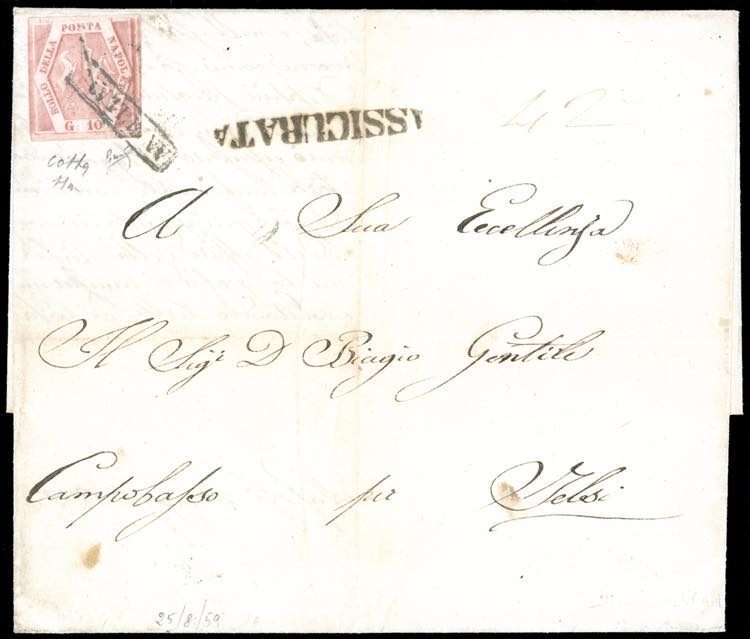 BOLLO DELLA POSTA NAPOLETANA
G. 10
ASSICURATA
42
A Sua Eccellenza
Il Sigr D Biagio Gentile
Campobasso per Jelsi
25/8/59